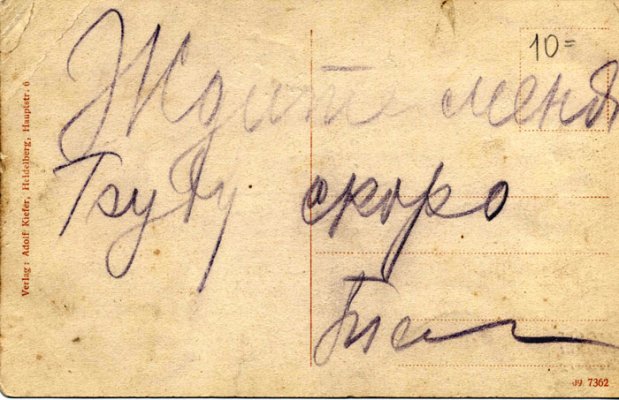 10=
Ждите меня
буду скоро
Verlag: Adolf Kiefer, Heidelberg, Hauptstr. 6
J9 7362